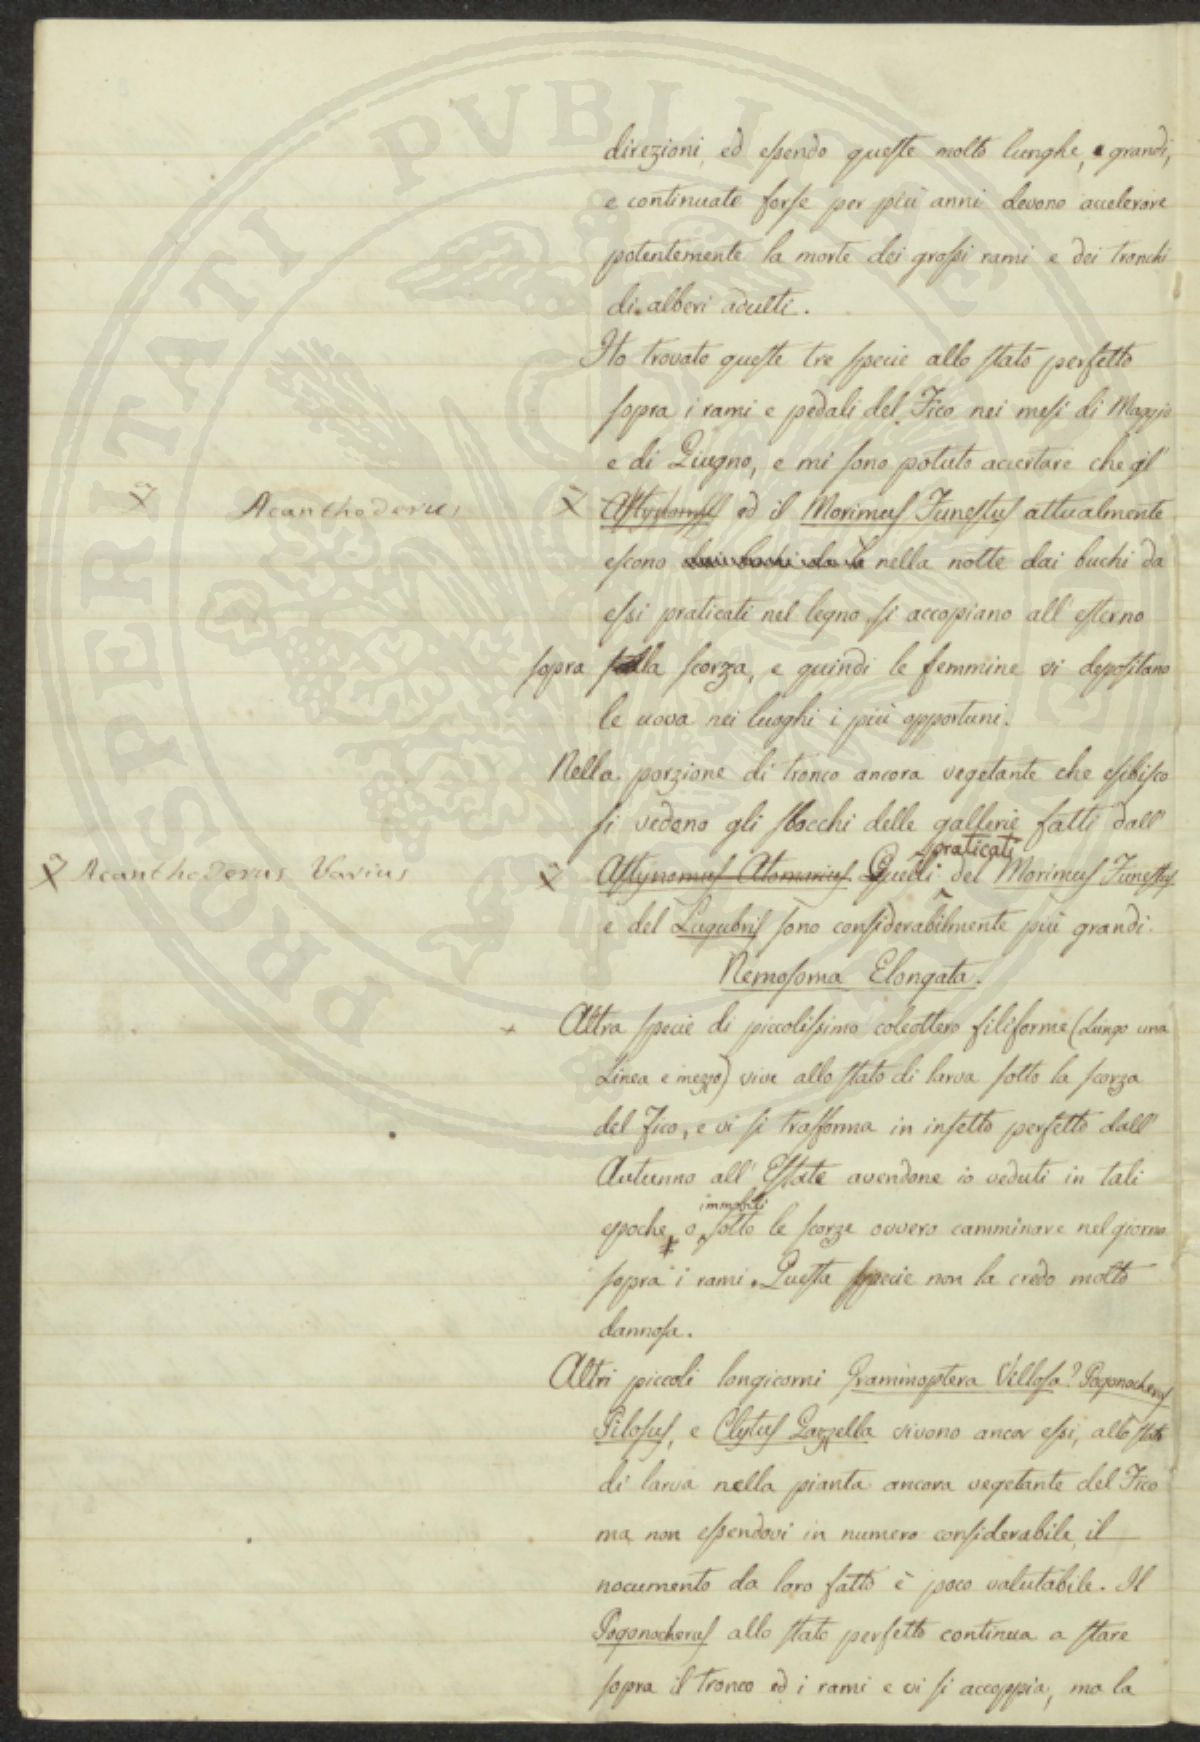 direzioni, ed essendo queste molto lunghe, e grandi,
e continuate forse per più anni devono accelerare
potentemente la morte dei grossi rami e dei tronchi
di alberi adulti.
Ho trovato queste tre specie allo stato perfetto
sopra i rami e pedali del Fico nei mesi di Maggio
e di Giugno, e mi sono potuto accertare che gl'
Acanthoderus
Astynomus ed il Morimus Funestus attualmente
escono dai buchi da nella notte dai buchi da
essi praticati nel legno, si accopiano all'esterno
sopra la scorza, e quindi le femmine vi depositano
le uova nei luoghi i più opportuni.
Nella porzione di tronco ancora vegetante che esibisco
si vedono gli sbocchi delle gallerie fatti dall'
praticati
Acanthoderus Varius
Astynomus Atomarius. Quelli del Morimus Funestus
e del Lugubris sono considerabilmente più grandi.
Nemosoma Elongata.
Altra specie di piccolissimo coleottero filiforme (Lungo una
Linea e mezzo) vive allo stato di larva sotto la scorza
del Fico, e vi si trasforma in insetto perfetto dall'
Autunno all'Estate avendone io veduti in tali
immobili
epoche, o sotto le scorze ovvero camminare nel giorno
sopra i rami. Questa specie non la credo molto
dannosa.
Altri piccoli longicorni Grammoptera Villosa? Pogonocherus
Pilosus, e Clytus Gazzella vivono ancor essi, allo stato
di larva nella pianta ancora vegetante del Fico
ma non essendovi in numero considerabile, il
nocumento da loro fatto è poco valutabile. Il
Pogonocherus allo stato perfetto continua a stare
sopra il tronco ed i rami e vi si accoppia, ma la
PROSPERITATI PUBLICAE